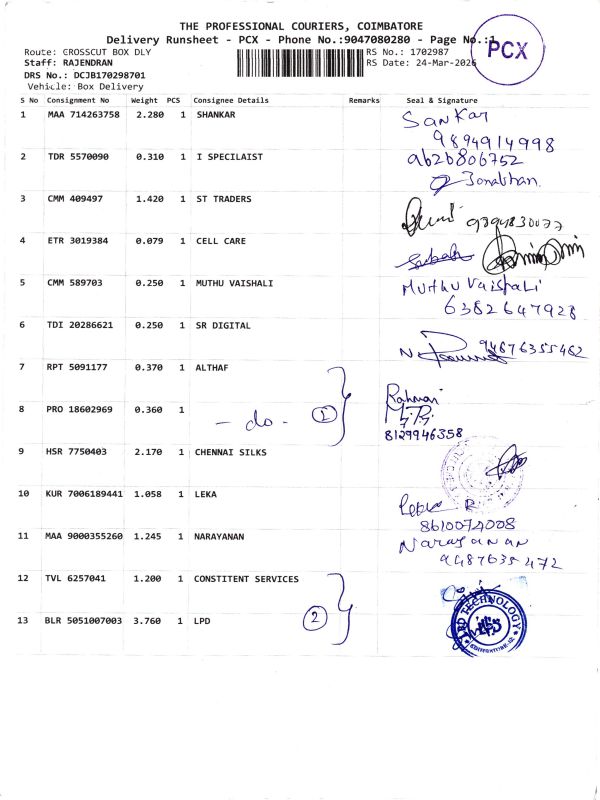 THE PROFESSIONAL COURIERS, COIMBATORE
Delivery Runsheet - PCX - Phone No.:9047080280 - Page No.:1
PCX
Route: CROSSCUT BOX DLY
RS No.: 1702987
Staff: RAJENDRAN
RS Date: 24-Mar-2026
DRS No.: DCJB170298701
Vehicle: Box Delivery
S No Consignment No Weight PCS Consignee Details Remarks Seal & Signature
1 MAA 714263758 2.280 1 SHANKAR Sankar
9894914998
2 TDR 5570090 0.310 1 I SPECILAIST 9626806752
Jonathan.
3 CMM 409497 1.420 1 ST TRADERS
9394830077
4 ETR 3019384 0.079 1 CELL CARE
5 CMM 589703 0.250 1 MUTHU VAISHALI Muthu Vaishali
6382647928
6 TDI 20286621 0.250 1 SR DIGITAL
94876355462
7 RPT 5091177 0.370 1 ALTHAF
8 PRO 18602969 0.360 1 - do - 1
8129946358
9 HSR 7750403 2.170 1 CHENNAI SILKS
10 KUR 7006189441 1.058 1 LEKA Leka R
8610074008
11 MAA 9000355260 1.245 1 NARAYANAN Narayanan
9487635472
12 TVL 6257041 1.200 1 CONSTITENT SERVICES
13 BLR 5051007003 3.760 1 LPD 2
TECHNOLOGY